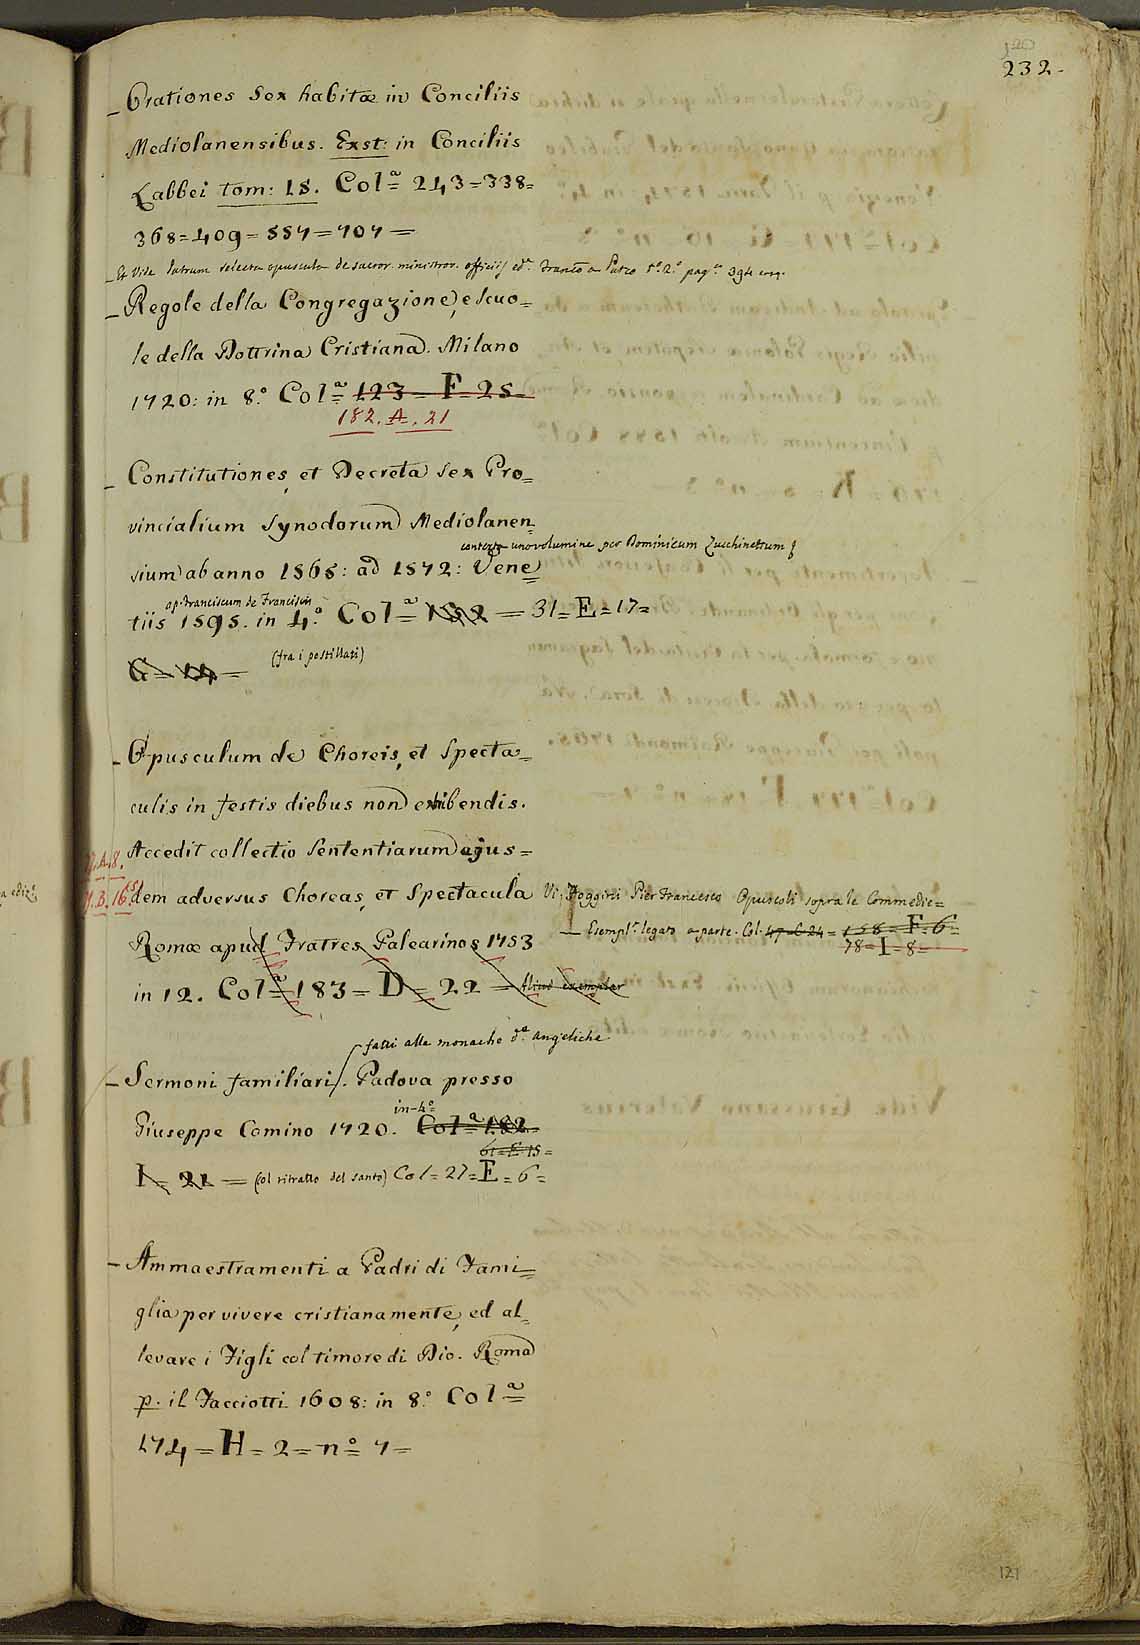 120
232.
Orationes Sex habitæ in Conciliis
Mediolanensibus. Exst: in Conciliis
Labbei tom: 15. Colª 243=338=
368=409=557=707=
Et Vide Patrum selecta opuscula de sacror. ministror. officiis
Regole della Congregazione, e Scuo=
le della Dottrina Cristiana. Milano
1720: in 8.º Colª 123=F=25=
182.A.21
Constitutiones, et Decreta Sex Pro=
vincialium Synodorum Mediolanen
contexta uno volumine per Dominicum Zucchinettum
sium ab anno 1565: ad 1572: Vene=
ap. Franciscum de Franciscis
tiis 1595. in 4.º Colª 182 = 31=E=17=
(fra i postillati)
G=14=
Opusculum de Choreis, et Specta=
culis in festis diebus non exhibendis.
Accedit collectio Sententiarum ejus=
dem adversus Choreas, et Spectacula
Vi, Foggini Pier Francesco Opuscoli sopra le Commedie=
Romæ apud Fratres Palearinos 1753
Esempl.e legato a parte. Col. 47=C 24=158=F=6=
78=I=8=
in 12. Colª 183=D=22= Aliud exemplar
fatti alle monache d.e Angeliche
Sermoni familiari. Padova presso
in-4º
Giuseppe Comino 1720. Colª 182
61=E=15=
I=21= (col ritratto del santo) Col=27=E=6=
Ammaestramenti a Padri di Fami=
glia per vivere cristianamente, ed al=
levare i Figli col timore di Dio. Roma
p. il Facciotti 1608: in 8.º Colª
174=H=2=nº 7=
121